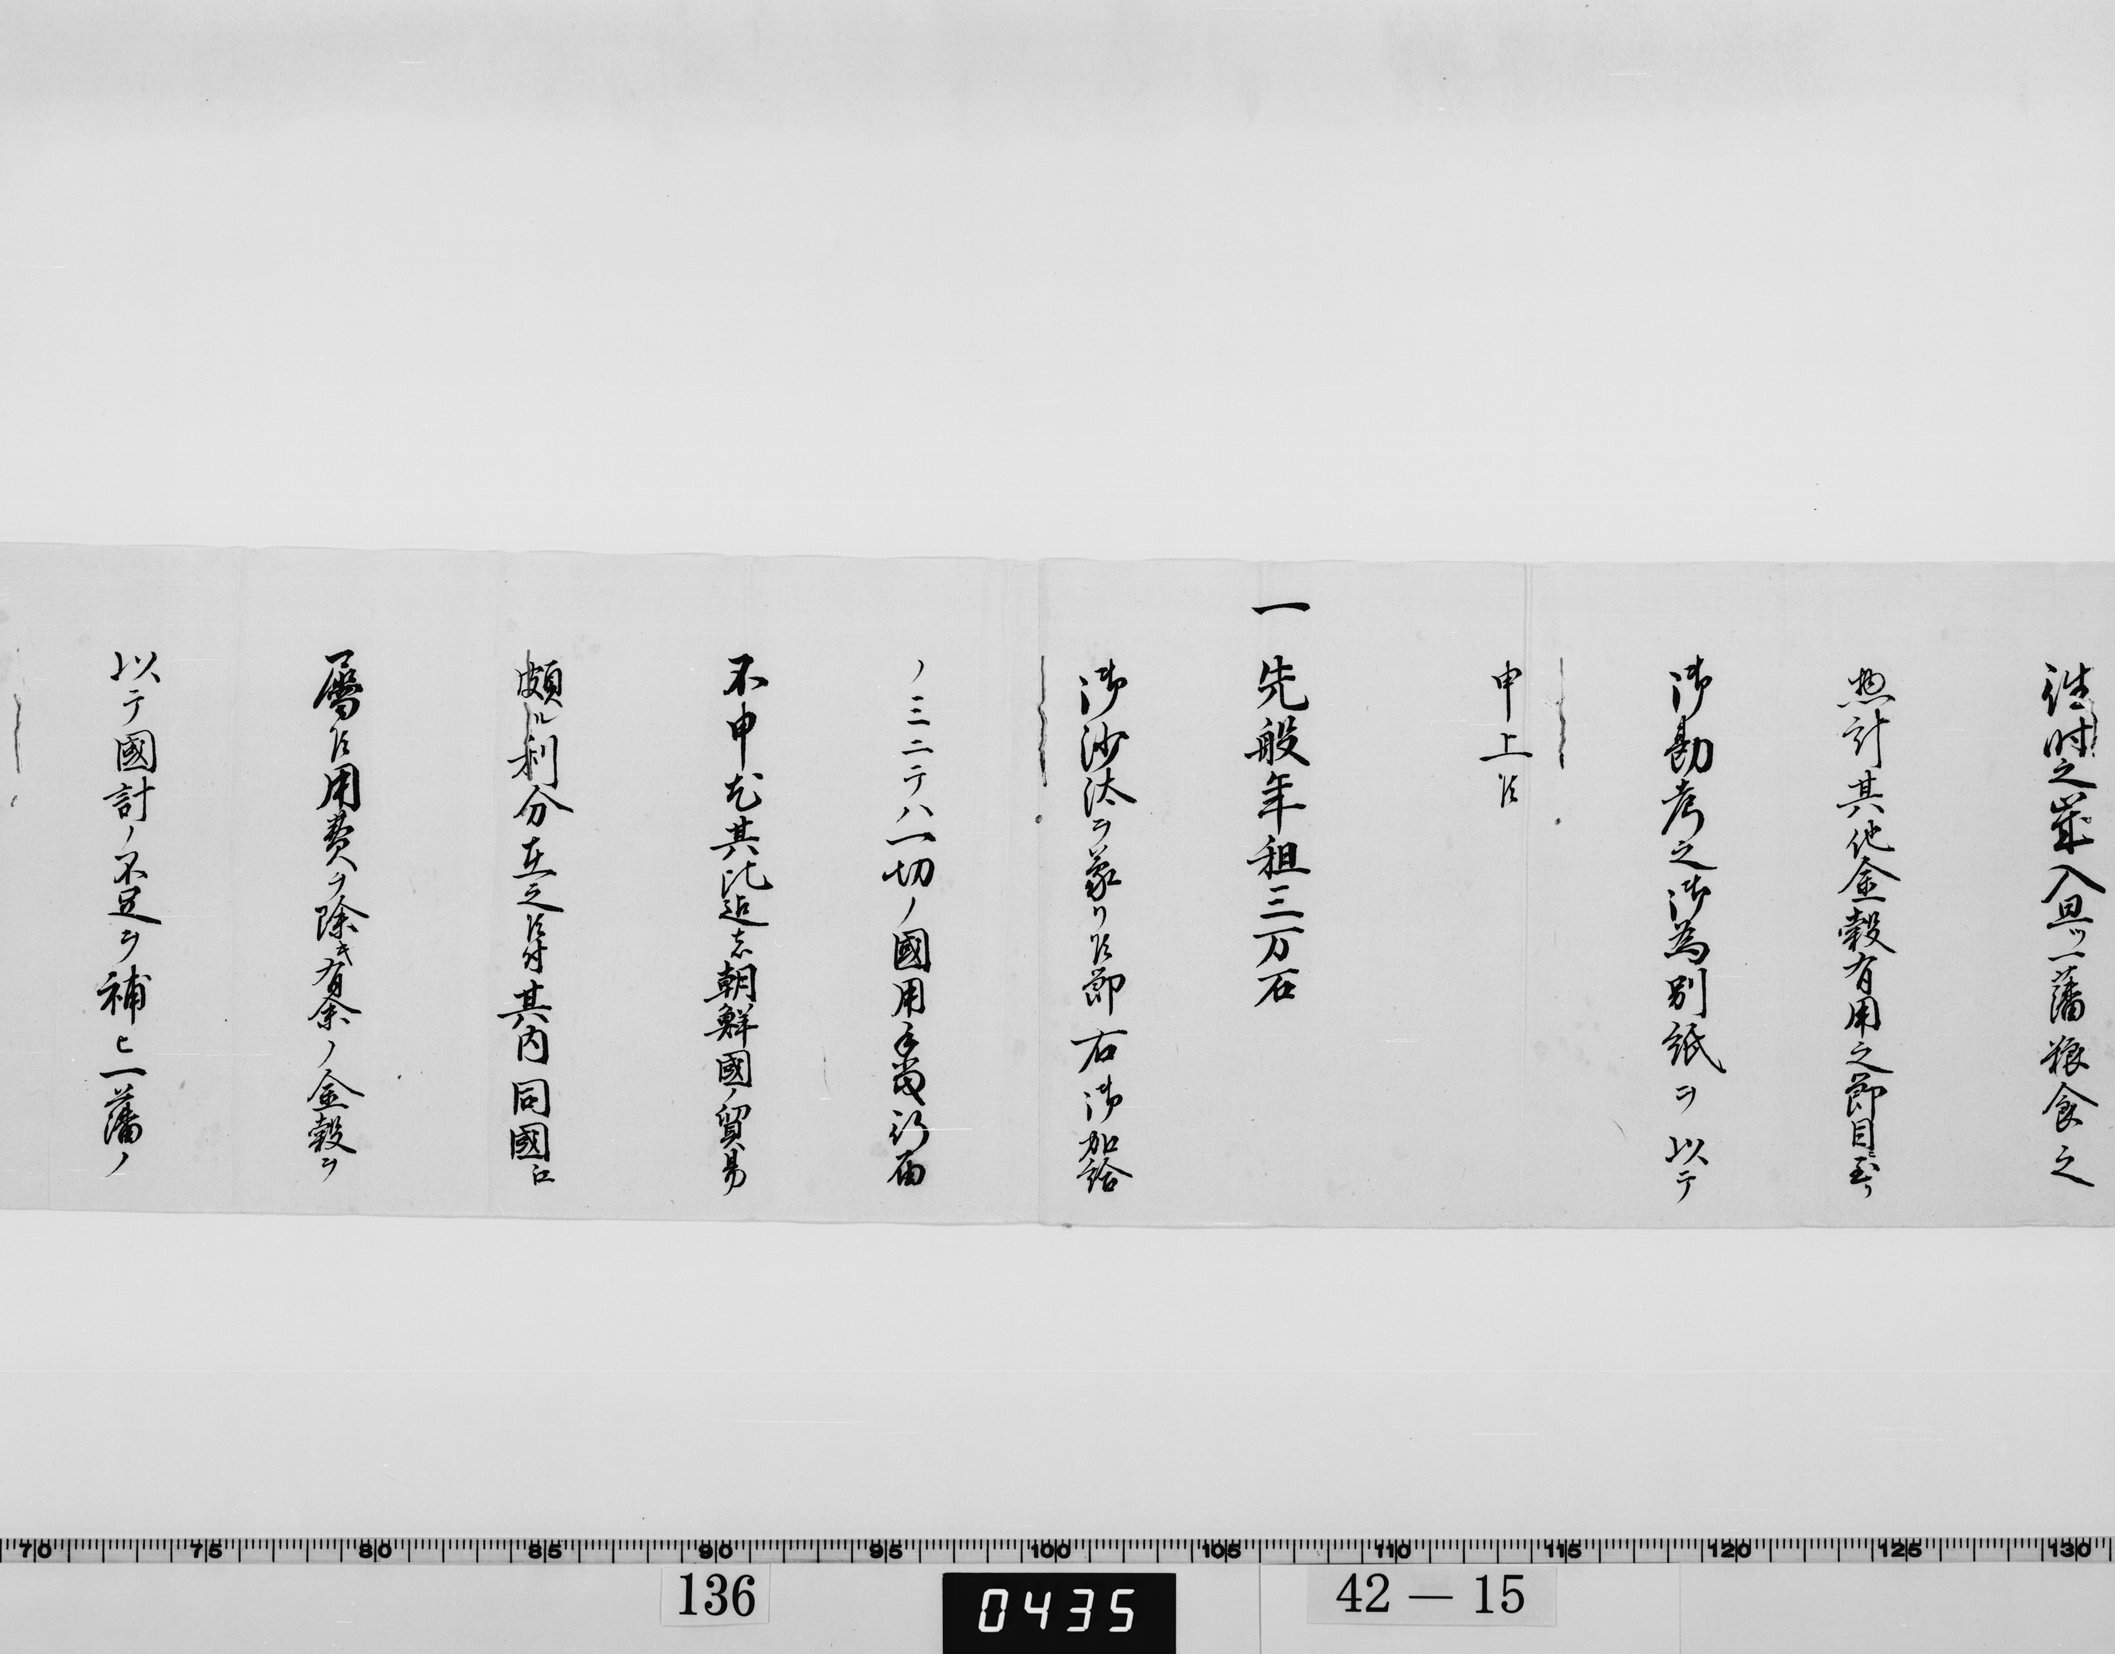 往時之歳入且ツ一藩粮食之
惣計其他金穀有用之節目至リ
御勘考之御為別紙ヲ以テ
申上候
一先般年租三万石
御沙汰ヲ蒙リ候節右御加給
ノミニテハ一切ノ國用手當行届
不申尤其比迄者朝鮮國ノ貿易
頗ル利分在之候付其内同國江
屬候用費ヲ除キ有余ノ金穀ヲ
以テ國計ノ不足ヲ補ヒ一藩ノ
70 75 80 85 90 95 100 105 110 115 120 125 130
136
0435
42－15